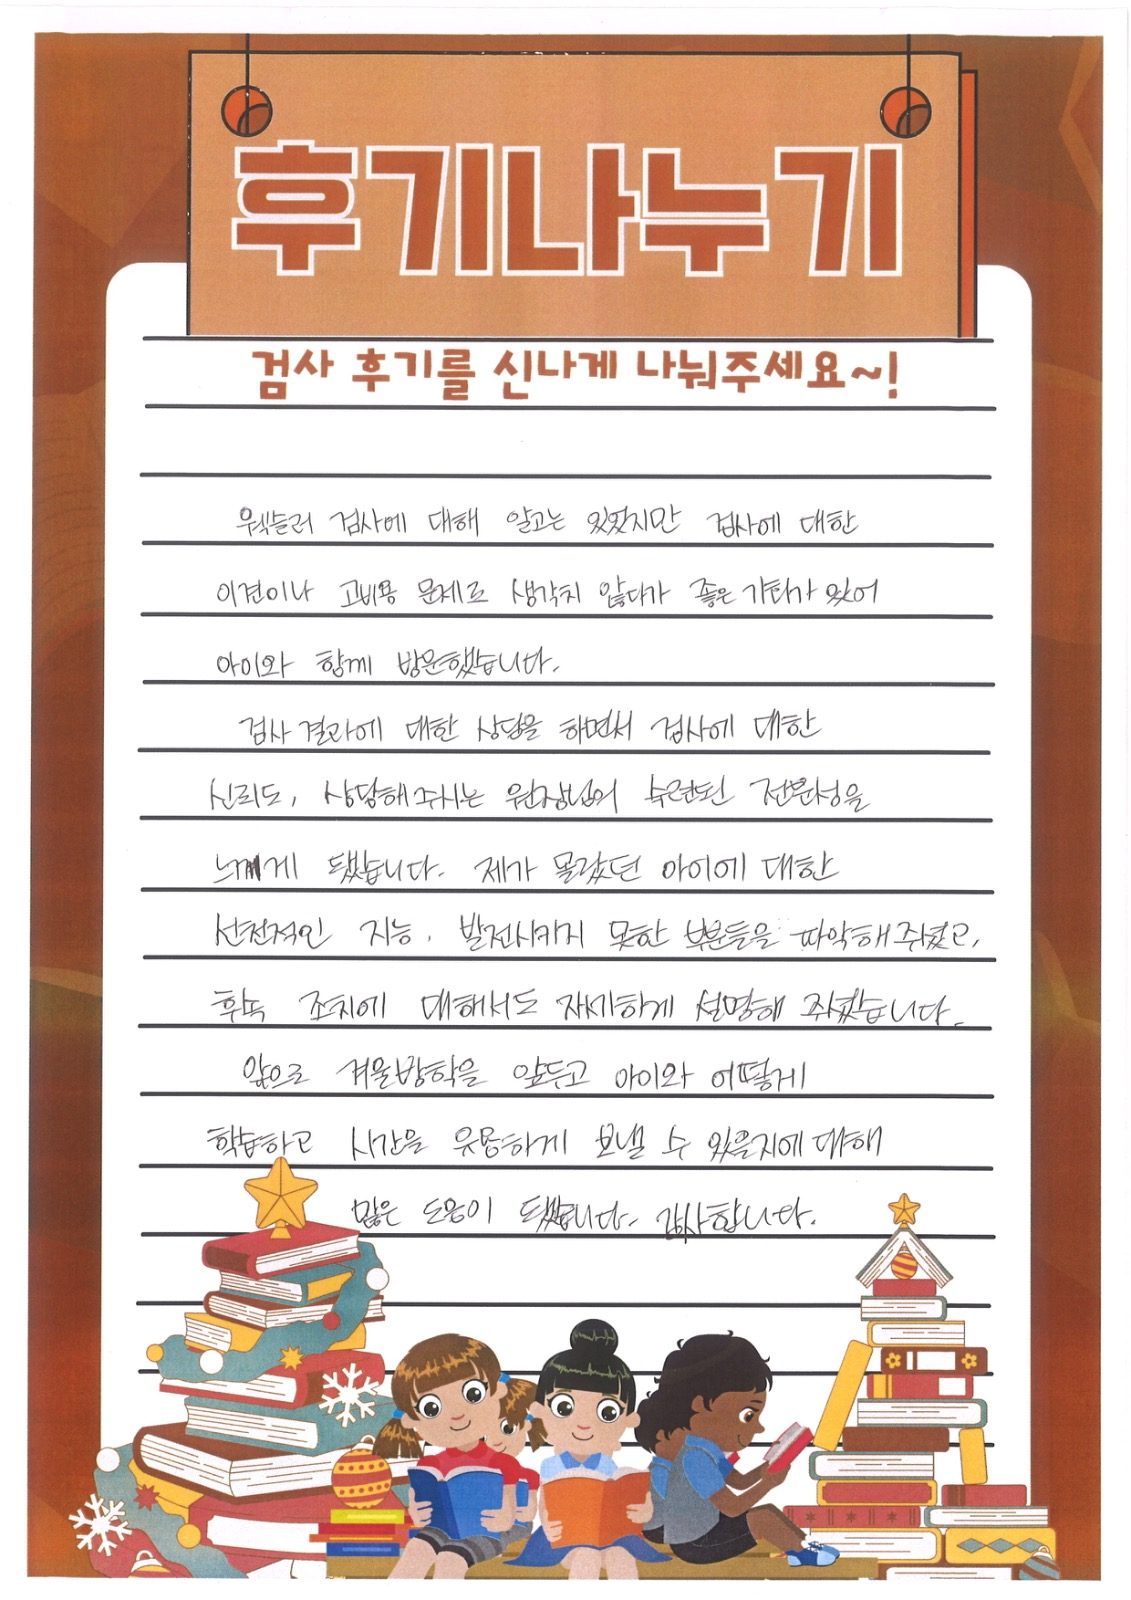 후기나누기
검사 후기를 신나게 나눠주세요~!
웩슬러 검사에 대해 알고는 있었지만 검사에 대한
이견이나 고비용 문제로 생각치 않다가 좋은 기회가 있어
아이와 함께 방문했습니다.
검사 결과에 대한 상담을 하면서 검사에 대한
신뢰도, 상담해주시는 원장님의 숙련된 전문성을
느끼게 됐습니다. 제가 몰랐던 아이에 대한
선천적인 지능, 발전시키지 못한 부분들을 파악해주셨고,
후속 조치에 대해서도 자세하게 설명해 주셨습니다.
앞으로 겨울방학을 앞두고 아이와 어떻게
학습하고 시간을 유용하게 보낼 수 있을지에 대해
많은 도움이 됐습니다. 감사합니다.